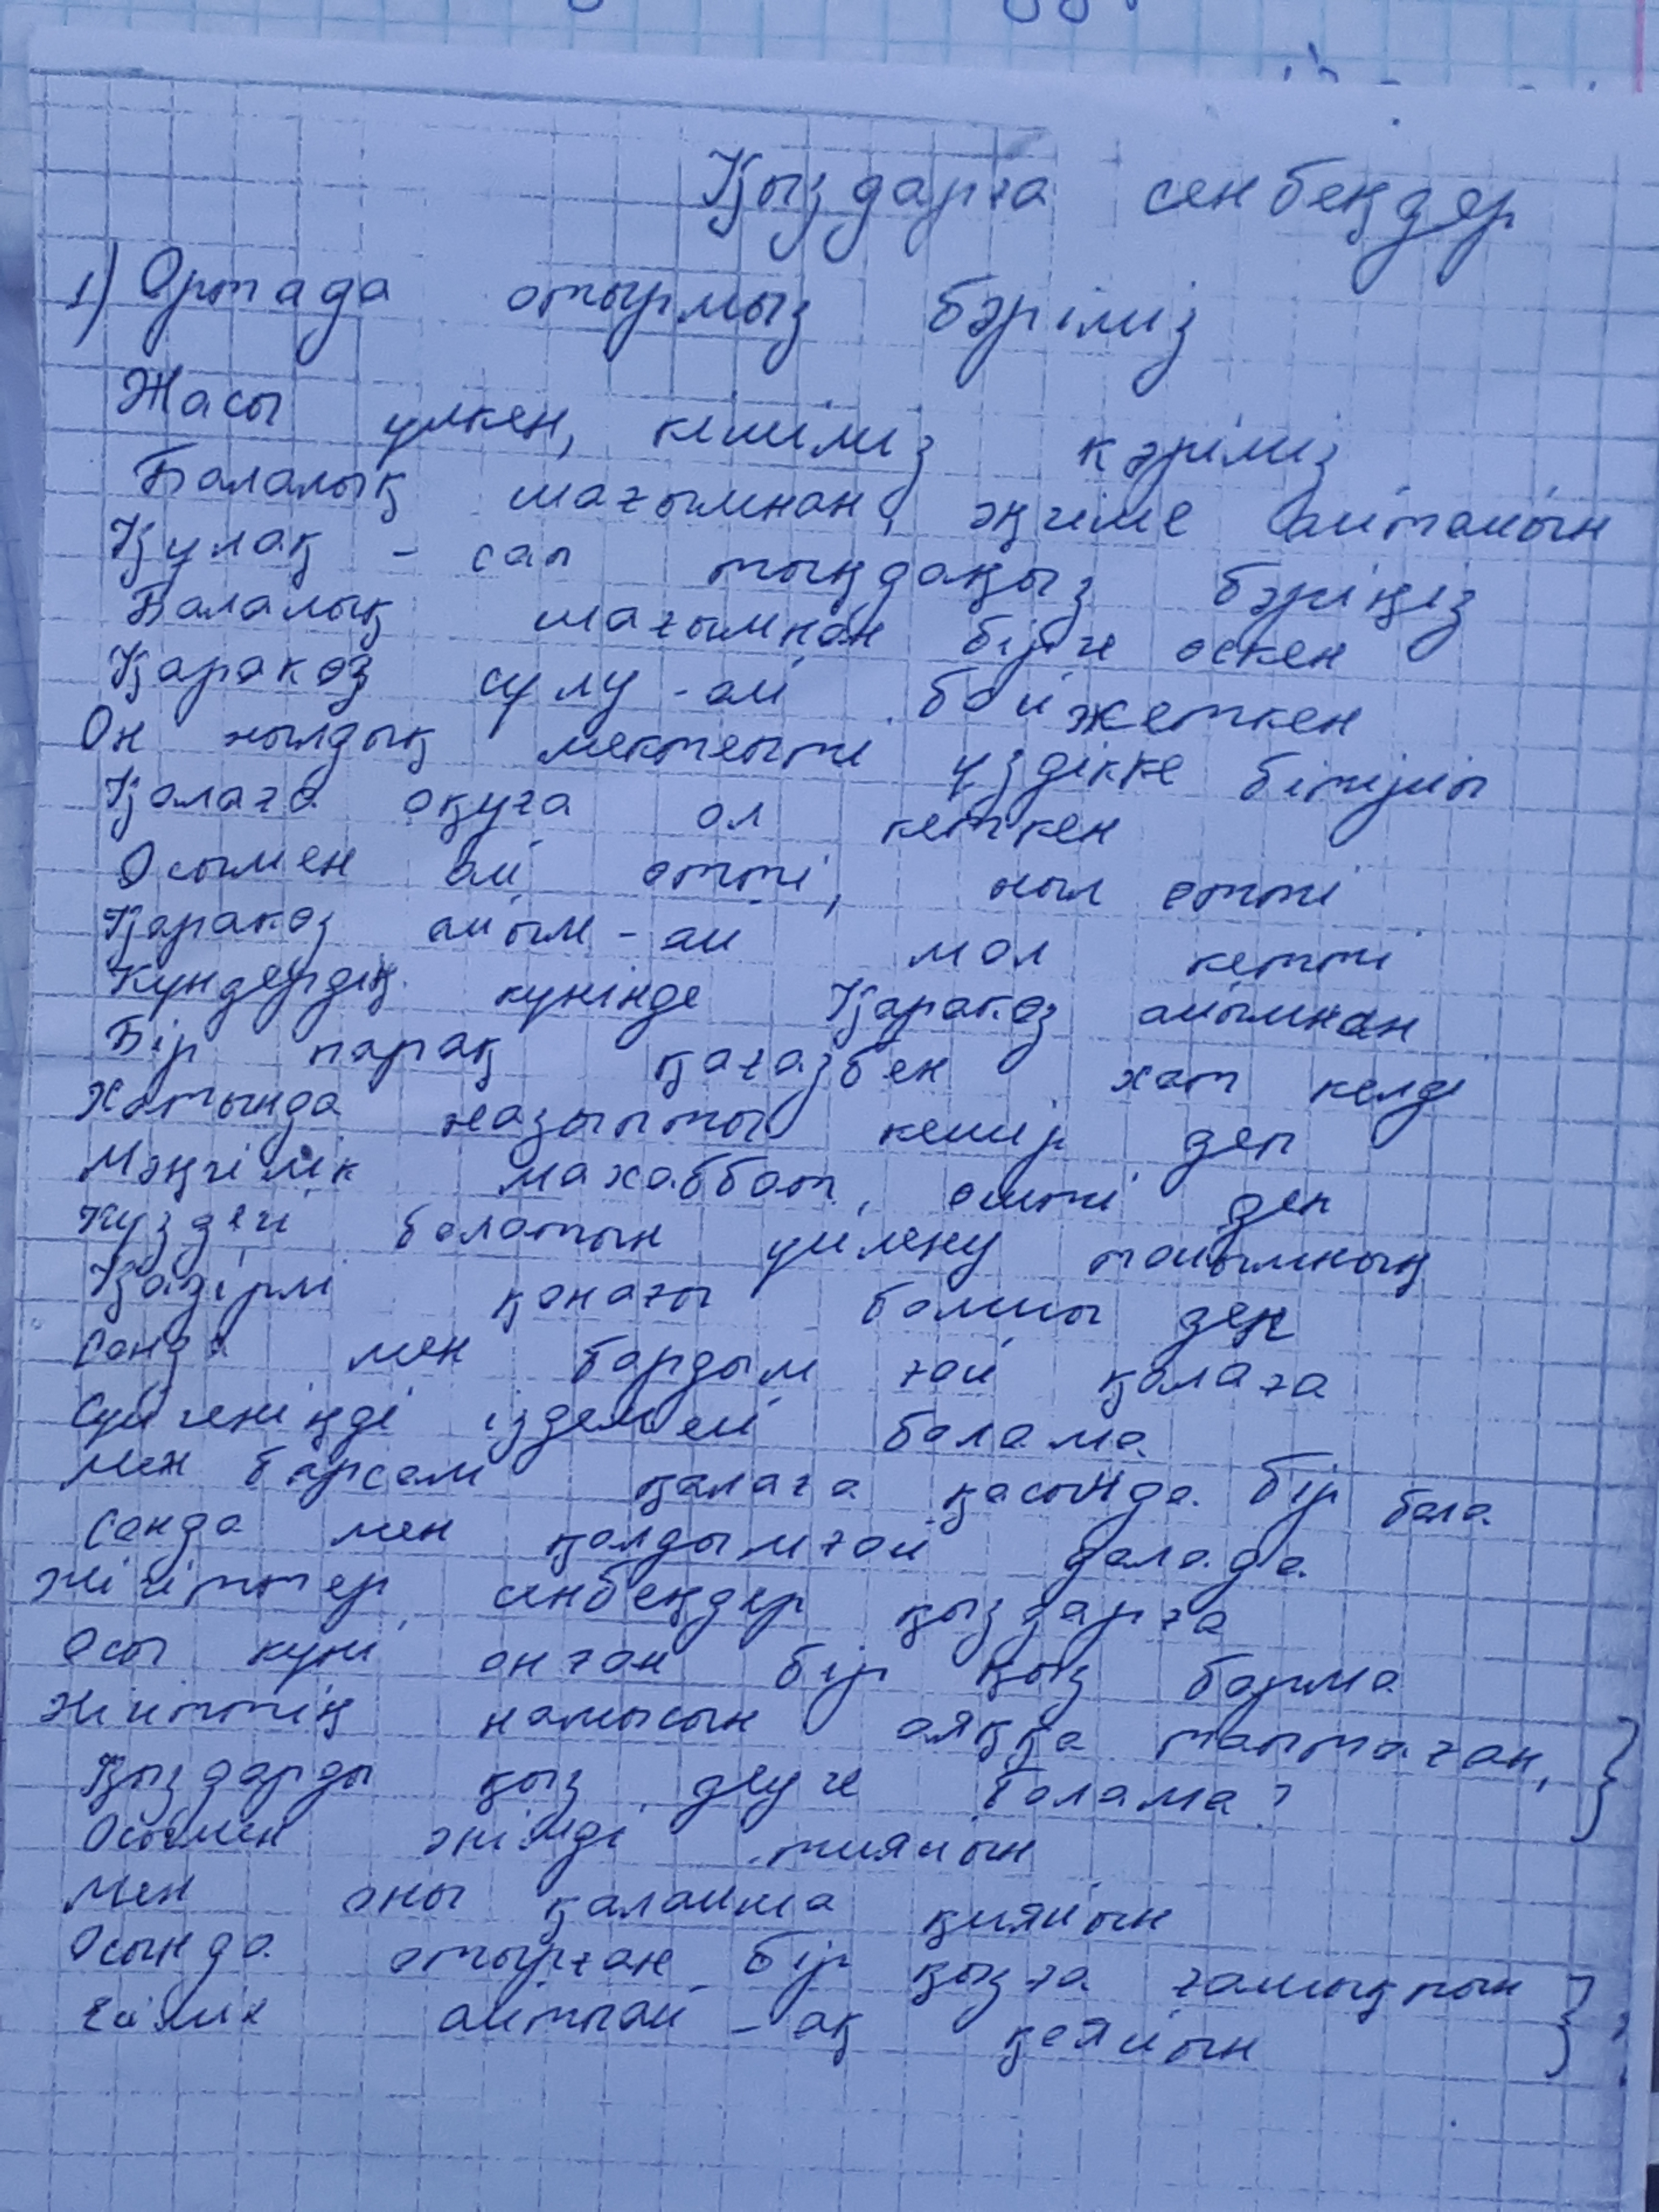 Қыздарға сенбеңдер
1) Ортада отырмыз бәріміз
Жасы үлкен, кішіміз кәріміз
Балалық шағымнан, әңгіме айтайын
Құлақ - сап тыңдаңыз бәріңіз
Балалық шағымнан бірге өскен
Қаракөз сұлу - ай бойжеткен
Он жылдық мектепті үздікке бітіріп
Қалаға оқуға ол кеткен
Осымен ай өтті, жыл өтті
Қаракөз айым - ай мол кетті
Күндердің күнінде Қаракөз айымнан
Бір парақ қағазбен хат келді
Хатында жазыпты кешір деп
Мәңгілік махаббат, өшті деп
Күздегі болатын үйлену тойымның
Қадірлі қонағы болшы деп
Сонда мен бардым ғой қалаға
Сүйгеніңді іздемей болама
Мен барсам қалаға қасында бір бала
Сонда мен қалдымғой далада
Жігіттер сенбеңдер қыздарға
Осы күні онған бір қыз барма
Жігіттің намысын аяққа таптаған,
Қыздарды қыз деуге болама?
Осымен әнімді тияйын
Мен оны қалайша қияйын
Осында отырған бір қызға ғашықпын
айтпай - ақ қояйын